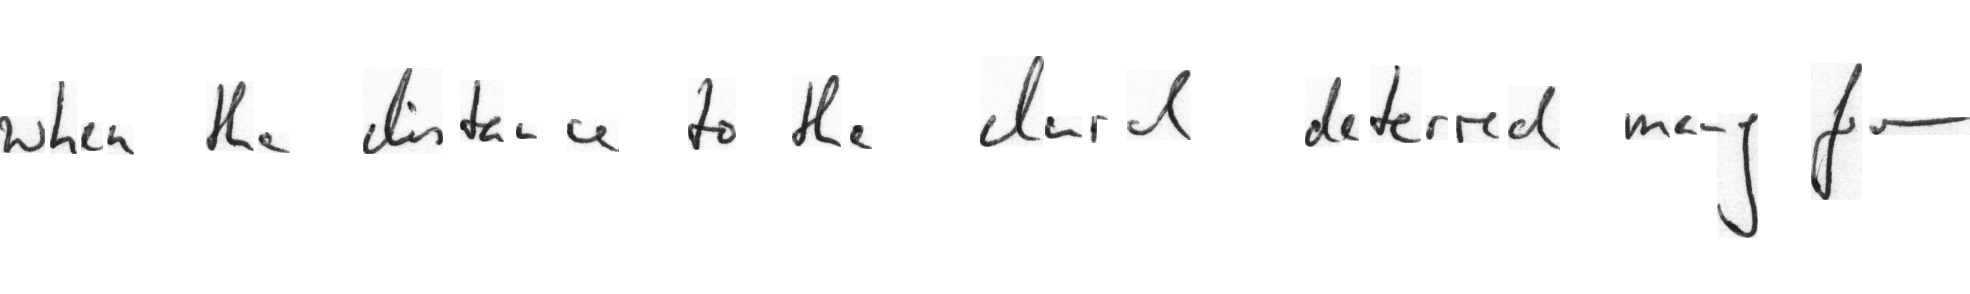 when the distance to the church deterred many from